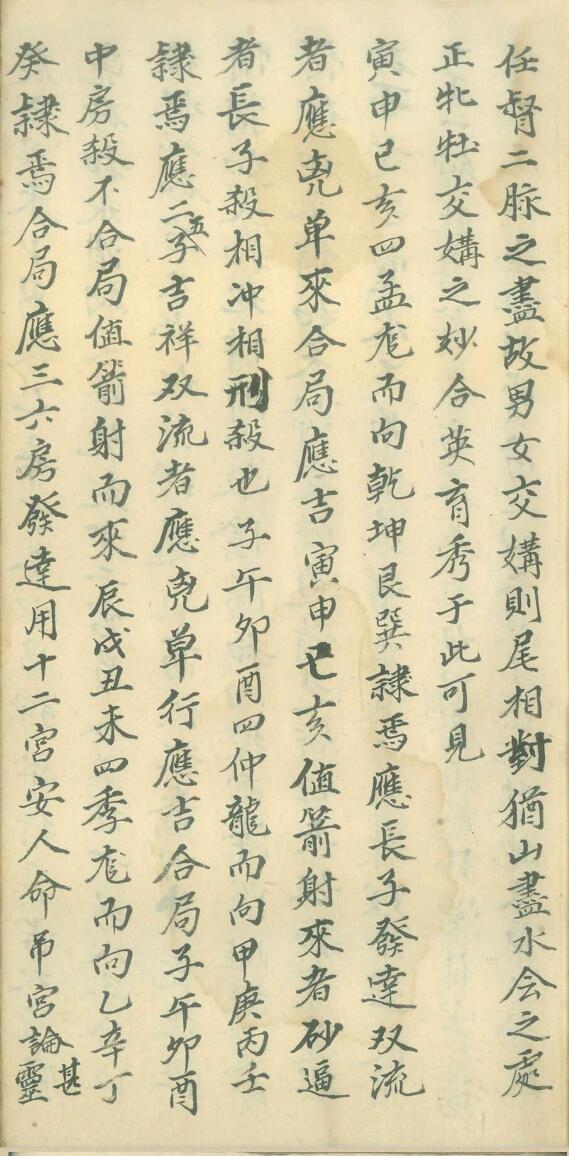 任督二脉之盡故男女交媾則尾相對猶山盡水会之處
正牝牡交媾之妙合英育秀于此可見
寅申巳亥四孟龙而向乾坤艮巽隷焉應長子發達双流
者應尅单來合局應吉寅申巳亥值箭射來者砂逼
者長子殺相冲相刑殺也子午卯酉四仲龍而向甲庚丙壬
隷焉應二五子吉祥双流者應尅单行應吉合局子午卯酉
中房殺不合局值箭射而來辰戌丑未四季龙而向乙辛丁
癸隷焉合局應三六房發達用十二宮安人命吊宮論甚靈